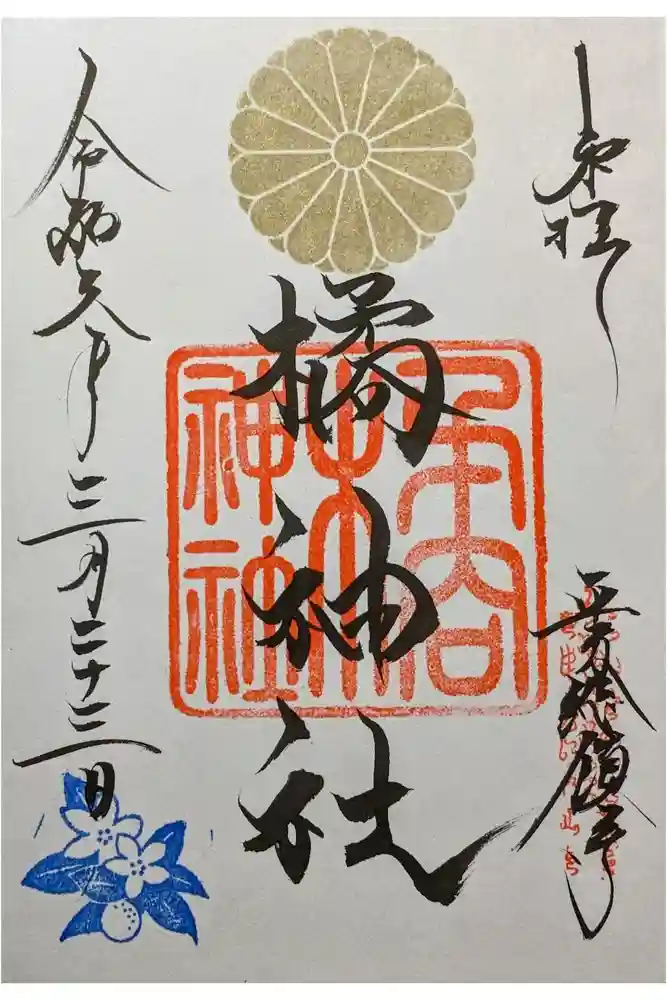 奉拝
橘神社
橘
神社
令和六年三月二十三日